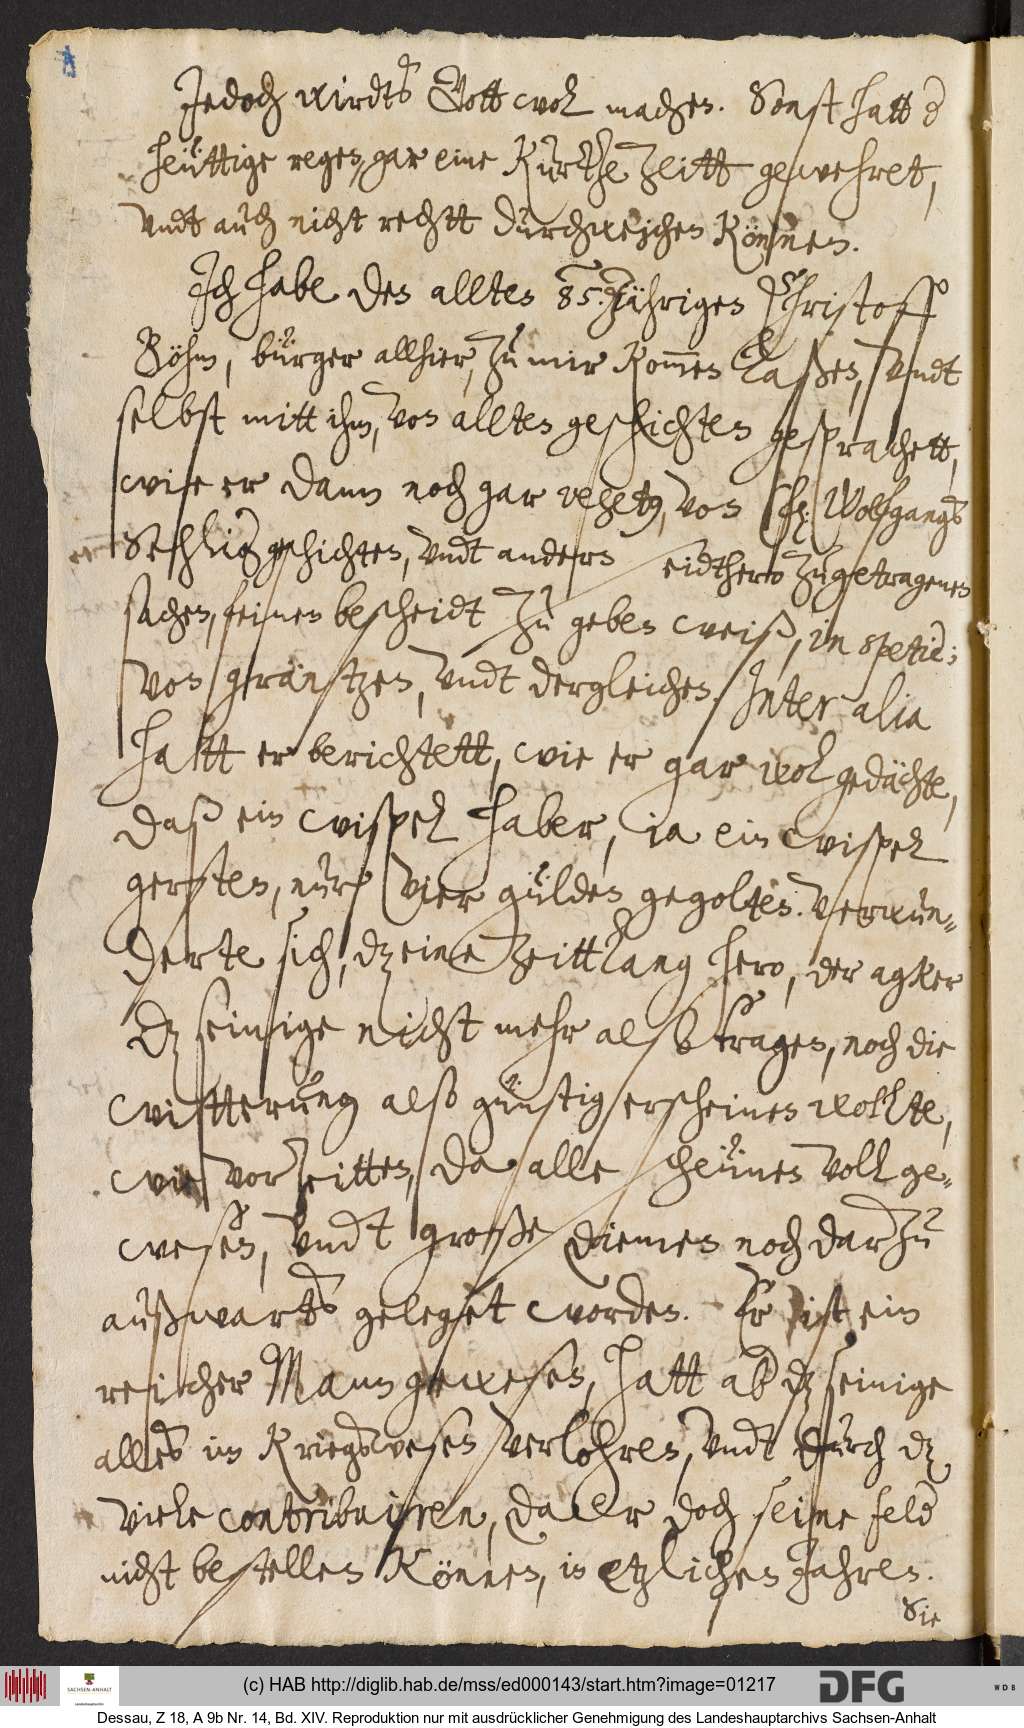 Jedoch wirdts Gott wol machen. Sonst hatt d
heüttige regen, gar eine Kurtze Zeitt gewehret,
undt auch nicht rechtt durchweichen Können.
Ich habe den allten 85. Jährigen Christoff
Böhm, bürger allhier, zu mir Kom̅en laßen, undt
selbst mitt ihm, von allten geschichten gesprachett,
wie er dann noch gar von Wolfgangs
geschichten, undt anders seidthero zugetragenen
sachen, feinen bescheidt zu geben weiß, in spetie;
von gräntzen, undt dergleichen. Inter alia
hatt er berichtett, wie er gar wol gedächte,
daß ein wispel haber, ia ein wispel
gersten, nur vier gülden gegolten. Verwun-
derte sich, dz eine Zeittlang hero, der agker
dz seinige nicht mehr also tragen, noch die
witterung also günstig erscheinen wollte,
wie vor zeitten, da alle scheünen voll ge-
wesen, undt große diemen noch darzu
außwarts geleget worden. Er ist ein
reicher Mann gewesen, hatt ab dz seinige
alles im Kriegswesen verlohren, undt durch dz
viele contribuiren, da er doch seine feld
nicht bestellen Können, in etzlichen Jahren.
Sie
(c) HAB http://diglib.hab.de/mss/ed000143/start.htm?image=01217
SACHSEN-ANHALT
DFG
WDB
Dessau, Z 18, A 9b Nr. 14, Bd. XIV. Reproduktion nur mit ausdrücklicher Genehmigung des Landeshauptarchivs Sachsen-Anhalt